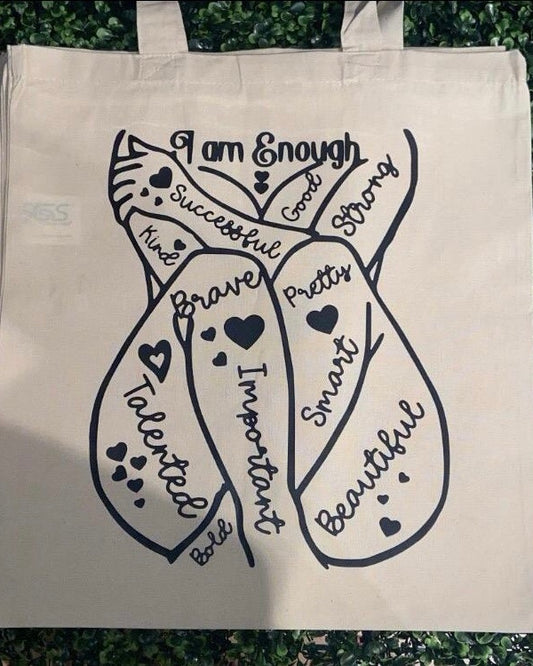 I am Enough
Good
Strong
Successful
Kind
Brave
Pretty
Smart
Important
Talented
Beautiful
Bold